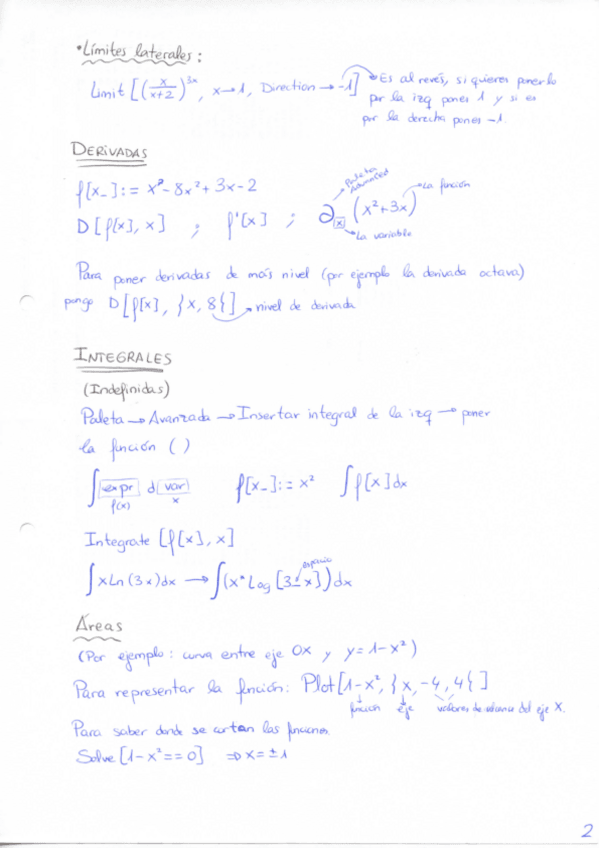 • Límites laterales:
Limit [(x/(x+2))^3x, x→1, Direction → -1] → Es al revés, si quieres ponerlo
por la izq pones 1 y si es
por la derecha pones -1.
DERIVADAS
Paleta Advanced
La función
f[x_] := x³ - 8x² + 3x - 2
D[f[x], x] ; f'[x] ; ∂x (x²+3x)
La variable
Para poner derivadas de más nivel (por ejemplo la derivada octava)
pongo D[f[x], {x, 8}] → nivel de derivada
INTEGRALES
(Indefinidas)
Paleta → Avanzada → Insertar integral de la izq → poner
la función ( )
∫ expr d var f[x_] := x² ∫ f[x] dx
f(x) x
Integrate [f[x], x]
∫ x Ln (3x) dx → ∫ (x* Log [3 x]) dx
espacio
Áreas
(Por ejemplo: curva entre eje OX y y = 1-x²)
Para representar la función: Plot [1-x², {x, -4, 4}]
función eje valores de del eje X.
Para saber donde se cortan las funciones.
Solve [1-x² == 0] ⇒ x = ±1
2